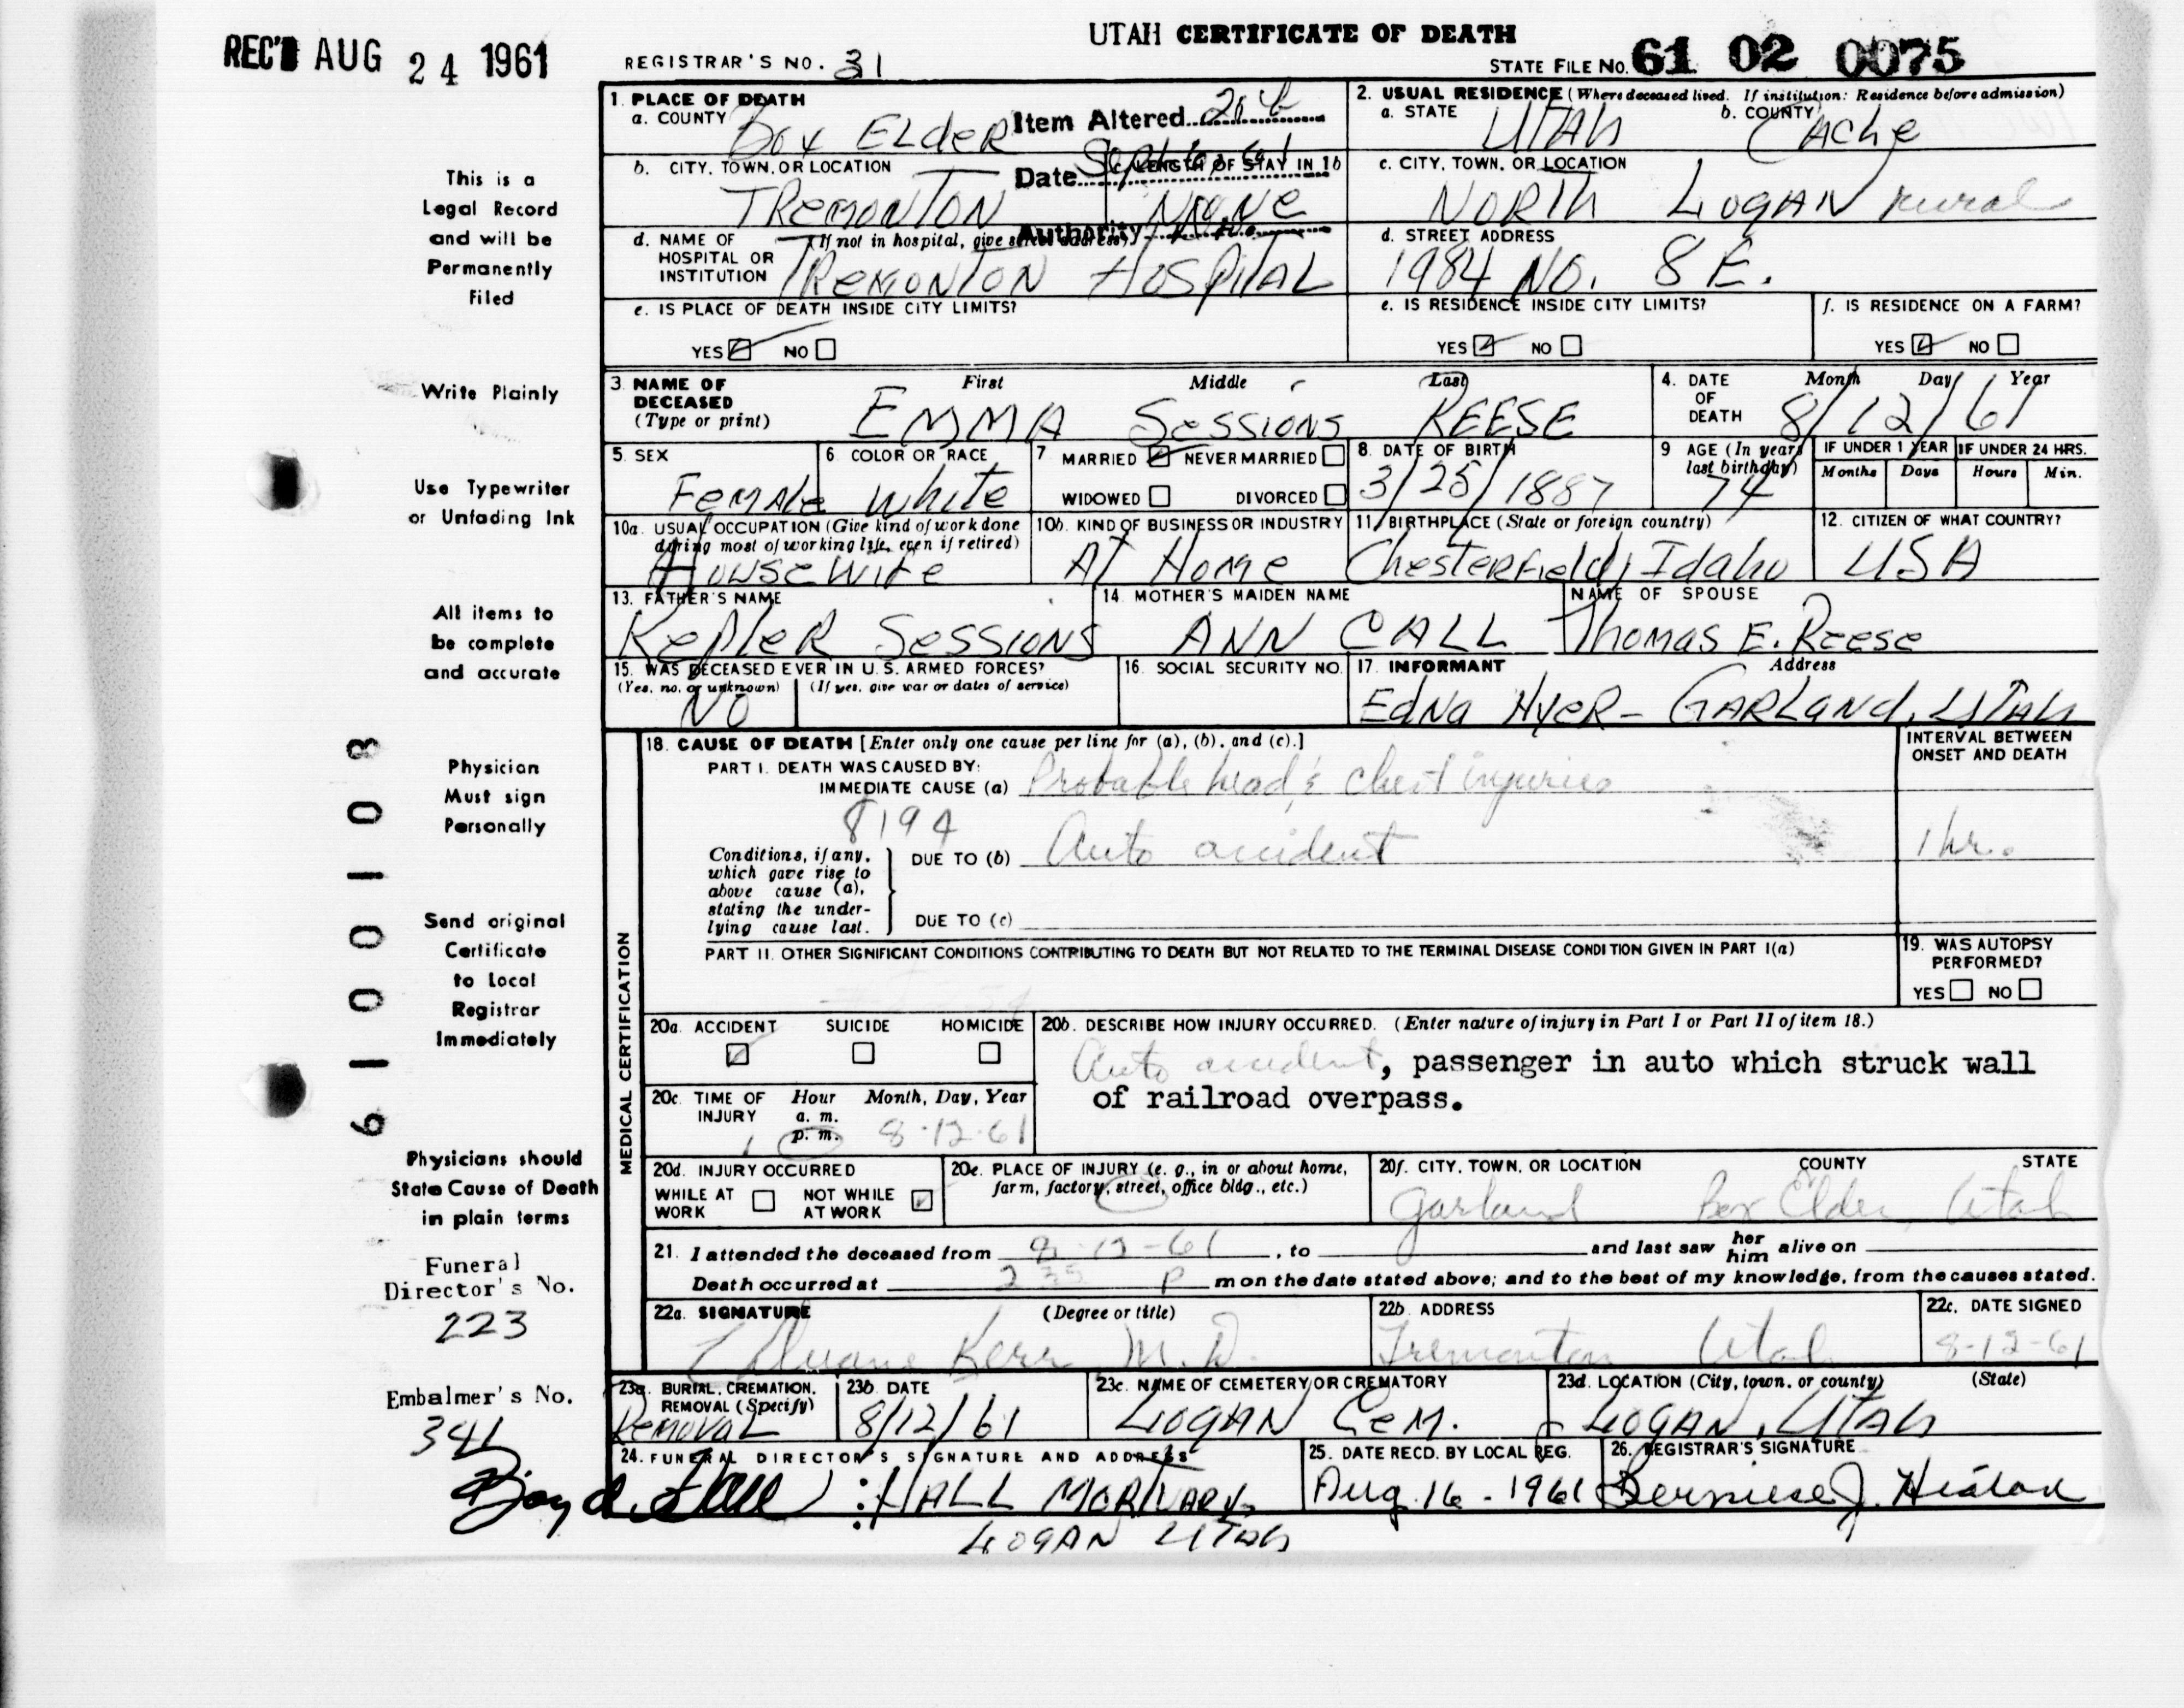 REC'D AUG 24 1961
UTAH CERTIFICATE OF DEATH
REGISTRAR'S NO. 31
STATE FILE No. 61 02 0075
1. PLACE OF DEATH
a. COUNTY Box Elder
Item Altered 20b
2. USUAL RESIDENCE (Where deceased lived. If institution: Residence before admission)
a. STATE UTAH b. COUNTY CAChe
b. CITY, TOWN, OR LOCATION TRemonTON
Date
LENGTH OF STAY IN 1b NoNe
Authority
c. CITY, TOWN, OR LOCATION NORTH LOGAN rural
d. NAME OF HOSPITAL OR INSTITUTION (If not in hospital, give street address) TRemonTON HOSPITAL
d. STREET ADDRESS 1984 NO. 8 E.
e. IS PLACE OF DEATH INSIDE CITY LIMITS?
YES NO
e. IS RESIDENCE INSIDE CITY LIMITS?
YES NO
f. IS RESIDENCE ON A FARM?
YES NO
3. NAME OF DECEASED (Type or print)
First Middle Last
EMMA SESSIONS REESE
4. DATE OF DEATH Month Day Year
8/12/61
5. SEX Female
6 COLOR OR RACE White
7 MARRIED NEVER MARRIED
WIDOWED DIVORCED
8. DATE OF BIRTH 3/25/1887
9 AGE (In years last birthday) 74
IF UNDER 1 YEAR Months Days
IF UNDER 24 HRS. Hours Min.
10a. USUAL OCCUPATION (Give kind of work done during most of working life, even if retired) Housewife
10b. KIND OF BUSINESS OR INDUSTRY AT Home
11. BIRTHPLACE (State or foreign country) Chesterfield, Idaho
12. CITIZEN OF WHAT COUNTRY? USA
13. FATHER'S NAME KepleR SESSIONS
14 MOTHER'S MAIDEN NAME ANN CALL
NAME OF SPOUSE Thomas E. Reese
15. WAS DECEASED EVER IN U.S. ARMED FORCES?
(Yes, no, or unknown) (If yes, give war or dates of service)
NO
16. SOCIAL SECURITY NO.
17. INFORMANT Address
Edna HyeR - GARLAND, UTAH
MEDICAL CERTIFICATION
18. CAUSE OF DEATH [Enter only one cause per line for (a), (b), and (c).]
INTERVAL BETWEEN ONSET AND DEATH
PART I. DEATH WAS CAUSED BY:
IMMEDIATE CAUSE (a) Probable head & chest injuries
8194
Conditions, if any, which gave rise to above cause (a), stating the underlying cause last.
DUE TO (b) Auto accident
1 hr.
DUE TO (c)
PART II. OTHER SIGNIFICANT CONDITIONS CONTRIBUTING TO DEATH BUT NOT RELATED TO THE TERMINAL DISEASE CONDITION GIVEN IN PART I(a)
19. WAS AUTOPSY PERFORMED?
YES NO
20a. ACCIDENT SUICIDE HOMICIDE
20b. DESCRIBE HOW INJURY OCCURRED. (Enter nature of injury in Part I or Part II of item 18.)
Auto accident, passenger in auto which struck wall
of railroad overpass.
20c. TIME OF INJURY Hour a. m. p. m. Month, Day, Year
1 8-12-61
20d. INJURY OCCURRED
WHILE AT WORK NOT WHILE AT WORK
20e. PLACE OF INJURY (e. g., in or about home, farm, factory, street, office bldg., etc.)
20f. CITY, TOWN, OR LOCATION COUNTY STATE
Garland Box Elder, Utah
21. I attended the deceased from 8-12-61, to and last saw her him alive on
Death occurred at 2 35 P m on the date stated above; and to the best of my knowledge, from the causes stated.
22a. SIGNATURE (Degree or title)
Kerr M.D.
22b. ADDRESS Tremonton Utah
22c. DATE SIGNED 8-12-61
23a. BURIAL, CREMATION, REMOVAL (Specify) Removal
23b. DATE 8/12/61
23c. NAME OF CEMETERY OR CREMATORY LOGAN CeM.
23d. LOCATION (City, town, or county) (State)
LOGAN, UTAH
24. FUNERAL DIRECTOR'S SIGNATURE AND ADDRESS
: HALL MORTUARY
LOGAN UTAH
25. DATE RECD. BY LOCAL REG. Aug. 16 - 1961
26. REGISTRAR'S SIGNATURE
This is a
Legal Record
and will be
Permanently
Filed
Write Plainly
Use Typewriter
or Unfading Ink
All items to
be complete
and accurate
Physician
Must sign
Personally
Send original
Certificate
to Local
Registrar
Immediately
Physicians should
State Cause of Death
in plain terms
Funeral
Director's No.
223
Embalmer's No.
61001108